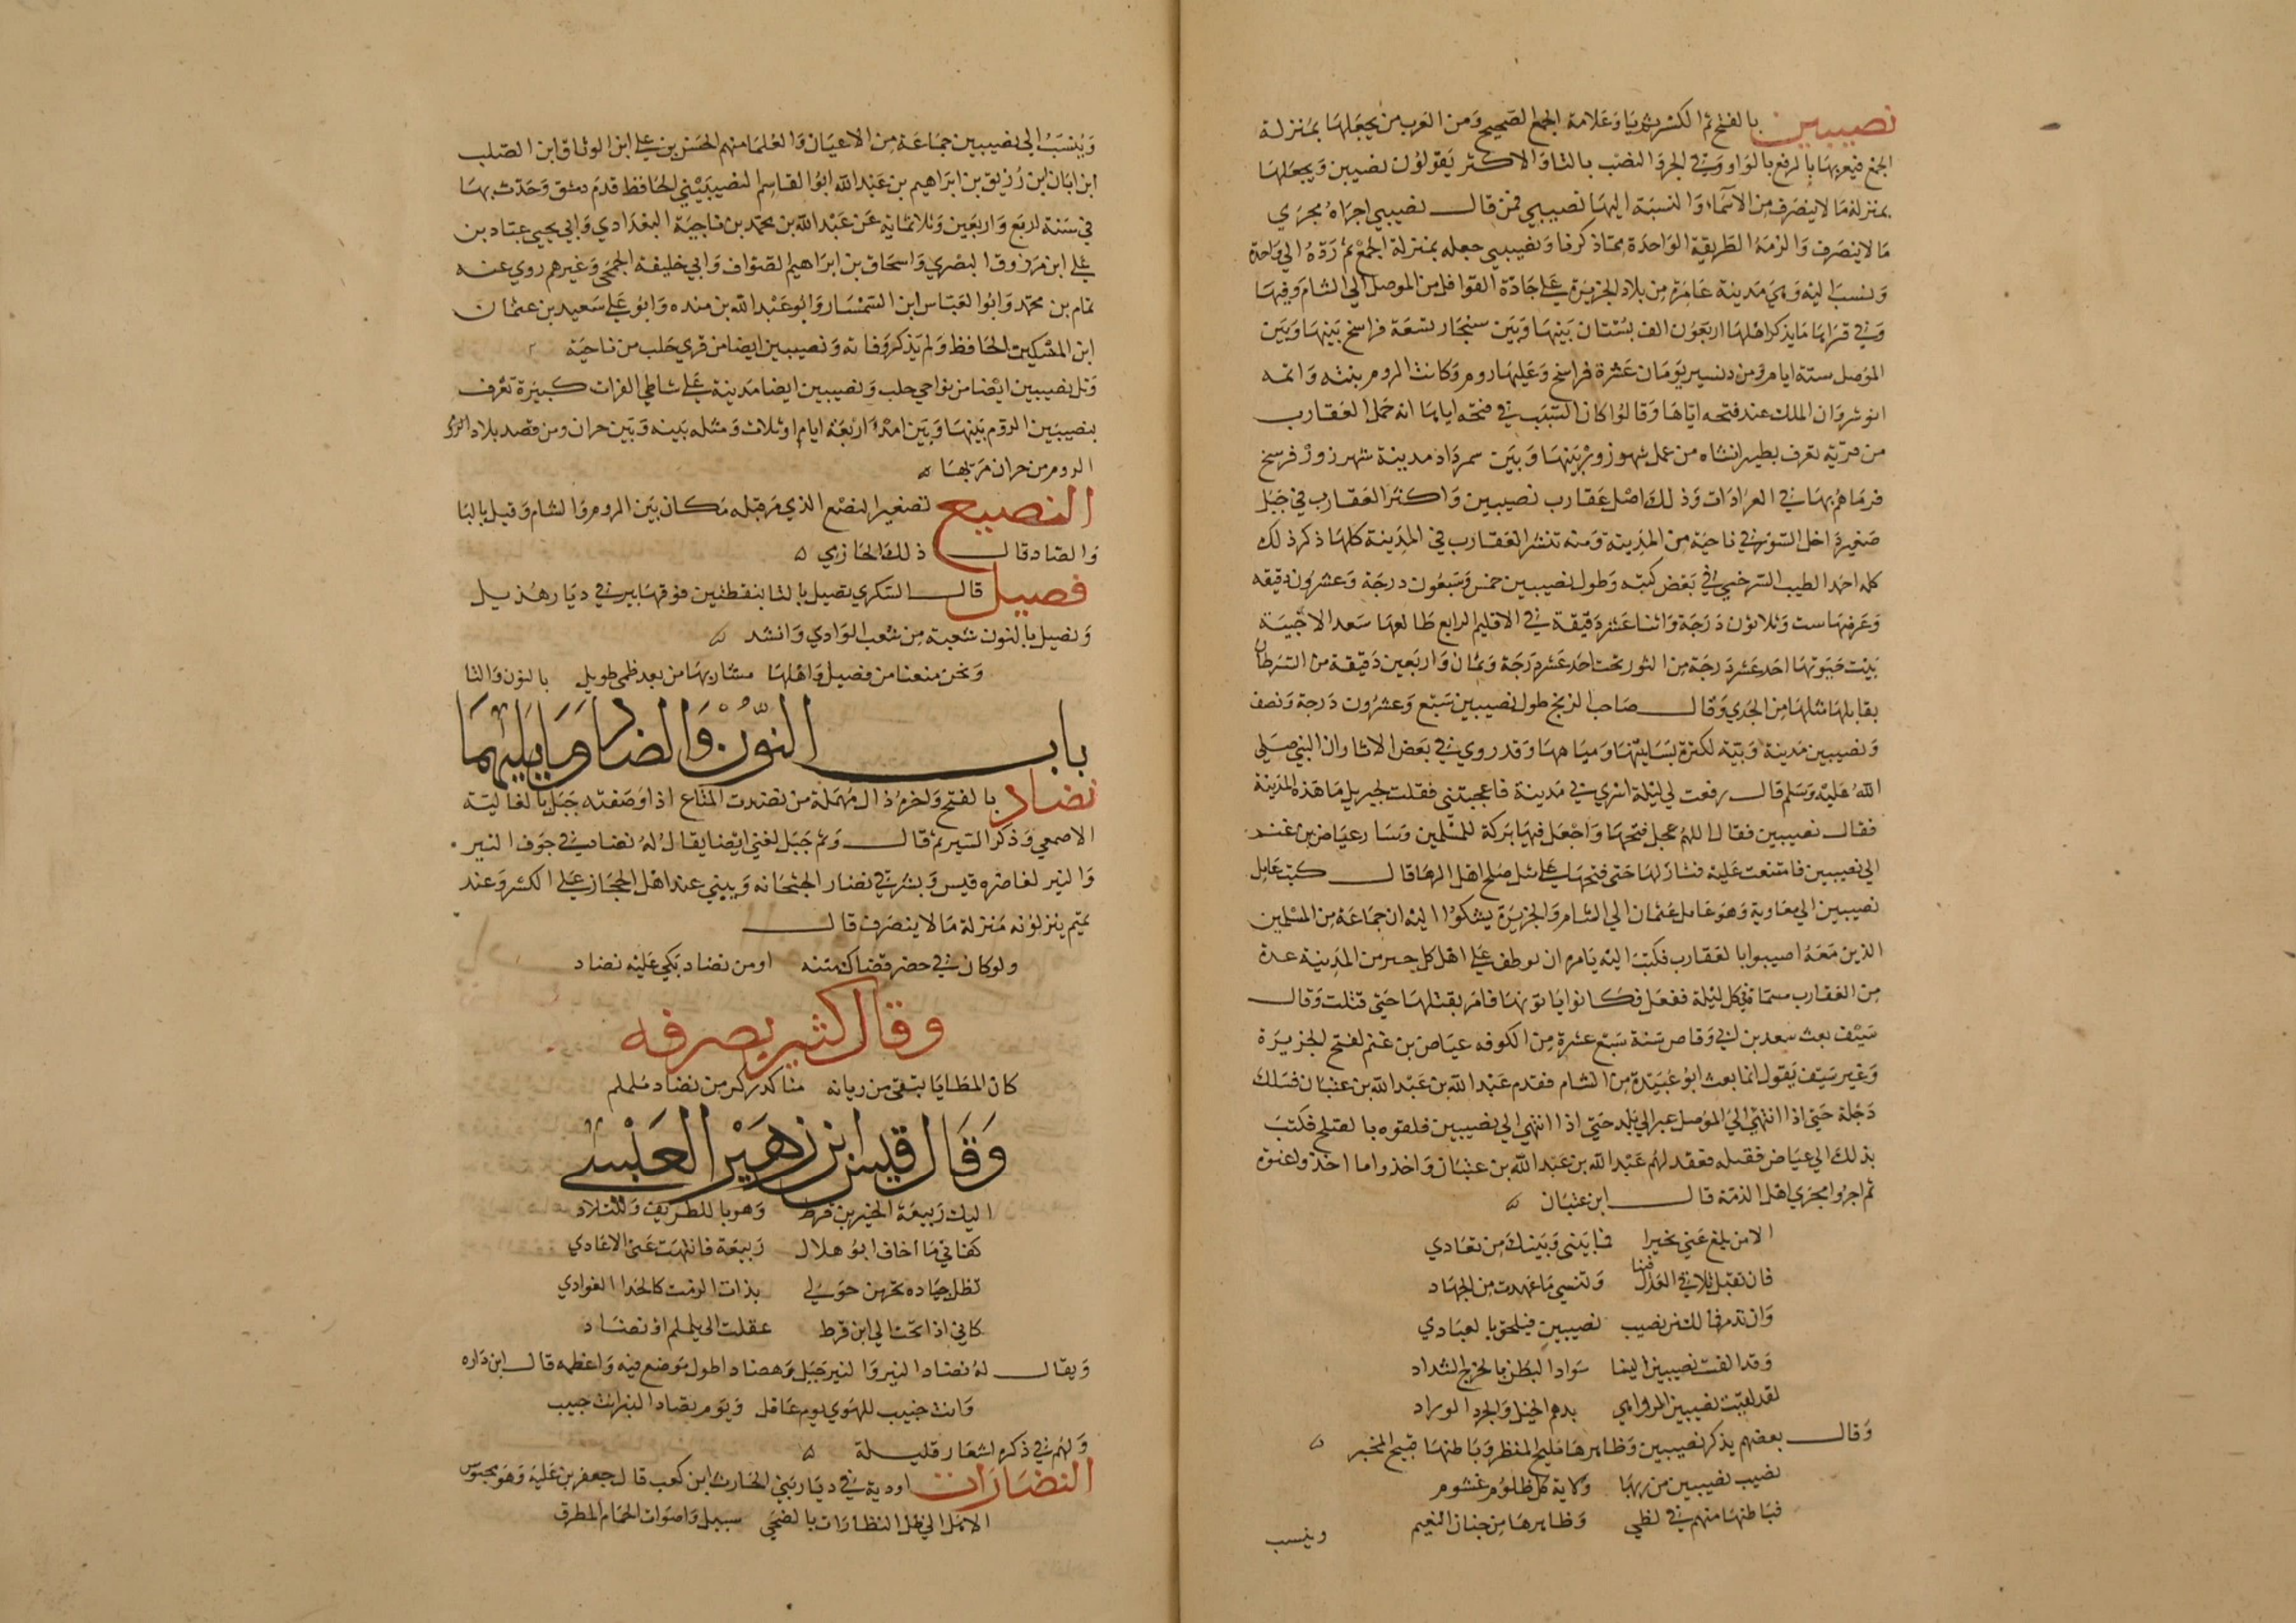 نصيبين بالفتح ثم الكسر ثم ياء وعلامة الجمع الصحيح ومن العرب من يجعلها بمنزلة
الجمع فيعربها بالرفع بالواو وفي الجر والنصب بالياء والاكثر يقولون نصيبين ويجعلها
بمنزلة ما لا ينصرف من الاسماء والنسبة اليها نصيبيني فمن قال نصيبيني اجراه مجري
ما لا ينصرف والزمه الطريقة الواحدة مما ذكرنا ونصيبيي جعله بمنزلة الجمع ثم رده الي واحدة
ونسب اليه وهي مدينة عامرة من بلاد الجزيرة علي جادة القوافل من الموصل الي الشام وفيها
وفي قراها ما يذكر اهلها اربعون الف بستان بينها وبين سنجار تسعة فراسخ بينها وبين
الموصل ستة ايام ومن دنيسير يومان عشرة فراسخ وعليها روم وكانت الروم بنته واتمه
انوشروان الملك عند فتحه اياها وقالوا كان السبب في فتحه اياها انه حمل العقارب
من قرية تعرف بطيرانشاه من عمل شهرزور بينها وبين سمرداد مدينة شهرزور فرسخ
فرماهم بها في العرادات وذلك اصل عقارب نصيبين واكثر العقارب في جبل
صغير داخل السور في ناحية من المدينة ومنه تنتشر العقارب في المدينة كلها ذكر ذلك
كله احمد الطيب السرخسي في بعض كتبه وطول نصيبين خمس وسبعون درجة وعشرون دقيقه
وعرضها ست وثلاثون درجة واثنا عشر دقيقة في الاقليم الرابع طالعها سعد الاخبية
بيت حيوتها احد عشر درجة من الثور تحت احد عشر درجة وثمان واربعين دقيقة من السرطان
يقابلها مثلها من الجدي وقال صاحب الزيج طول نصيبين سبع وعشرون درجة ونصف
ونصيبين مدينة وبئة لكثرة بساتينها ومياهها وقد روي في بعض الاثار ان النبي صلي
الله عليه وسلم قال رفعت لي ليلة اسري في مدينة فاعجبتني فقلت لجبريل ما هذه المدينة
فقال نصيبين فقال اللهم عجل فتحها واجعل فيها بركة للمسلمين وسار عياض بن غنم
الي نصيبين فامتنعت عليه فنازلها حتي فتحها علي مثل صلح اهل الرها قال كتب عامل
نصيبين الي معاوية وهو عامل عثمان الي الشام والجزيرة يشكوا اليه ان جماعة من المسلمين
الذين معه اصيبوا بالعقارب فكتب اليه يامره ان يوظف علي اهل كل حيز من المدينة عدة
من العقارب مسماة في كل ليلة ففعل فكانوا ياتونها فامر بقتلها حتي قتلت وقال
سيف بعث سعد بن ابي وقاص سنة سبع عشرة من الكوفه عياض بن غنم لفتح الجزيرة
وغير سيف يقول انما بعث ابو عبيدة من الشام فقدم عبد الله بن عبد الله بن عتبان فسلك
دجلة حتي اذا انتهي الي الموصل عبر الي بلد حتي اذا انتهي الي نصيبين فلقوه بالصلح فكتب
بذلك الي عياض فقبله فعقد لهم عبد الله بن عبد الله بن عتبان واخذوا ما اخذوا عنوة
ثم اجروا مجري اهل الذمة قال ابن عتبان
الا من بلغ عني بخيرا فما بيني وبينك من تعادي
فان تقبل تلاق العدل فينا وتنسي ما عهدت من الجهاد
وان تدبر فمالك من نصيب نصيبين فيلحق بالعبادي
وقد القت نصيبين الينا سواد البطن بالخرج الشداد
لقد لقيت نصيبين الدواهي بدهم الخيل والجرد الوراد
وقال بعضهم يذكر نصيبين وظاهرها مليح المنظر وباطنها قبيح المخبر
نصيب نصيبين من ربها ولاية كل ظلوم غشوم
فباطنها منهم في لظي وظاهرها من جنان النعيم
وينسب
وينسب الي نصيبين جماعة من الاعيان والعلما منهم الحسن بن علي ابن الوثاق ابن الصلب
ابن ابان ابن رزيق بن ابراهيم بن عبد الله ابو القاسم النصيبيني الحافظ قدم دمشق وحدث بها
في سنة اربع واربعين وثلاثماية عن عبد الله بن محمد بن ناجية البغدادي وابي يحيي عباد بن
علي ابن مرزوق البصري واسحاق بن ابراهيم الصواف وابي خليفة الجمحي وغيرهم روي عنه
تمام بن محمد وابو العباس ابن السمسار وابو عبد الله بن منده وابو علي سعيد بن عثمان
ابن السكن الحافظ ولم يذكر وفاته ونصيبين ايضا من قري حلب من ناحية
وتل نصيبين ايضا من نواحي حلب ونصيبين ايضا مدينة علي شاطي الفرات كبيرة تعرف
بنصيبين الروم بينها وبين امد اربعة ايام او ثلاث ومثله بينه وبين حران ومن قصد بلاد
الروم من حران مر بها
النصيع تصغير النصع الذي مر قبله مكان بين الروم والشام وقيل بالبا
والضاد قال ذلك الحازمي
فصيل قال السكري نصيل بالتا بنقطتين فوقها بير في ديار هذيل
ونصيل بالنون شعبة من شعب الوادي وانشد
ونحن منعنا من فصيل واهلها مشاربها من بعد ظمي طويل بالنون والتا
باب النون والضاد وما يليهما
نضاد بالفتح واخره دال مهملة من نضدت المتاع اذا وصفته جبل بالعالية
الاصمعي وذكر النير ثم قال وثم جبل لغني ايضا يقال له نضاد في جوف النير
والنير لغاضره قيس وبشرقي نضار الجثحانه ويبني عند اهل الحجاز علي الكسر وعند
تميم ينزلونه منزلة ما لا ينصرف قال
ولو كان في حضن قضاك متنه او من نضاد بكي عليه نضاد
وقال كثير يصرفه
كان المطايا بتقي من ريانه مناكد ركن من نضاد ململم
وقال قيس ابن زهير العبسي
اليك ربيعة الخير بن قرط وهوبا للطريف وللتلاد
كفاني ما اخاف ابو هلال ربيعة فانتهت عني الاعادي
تظل جياده يحزهن حولي بذات الرمث كالحدا الغوادي
كاني اذا انحت الي ابن قرط عقلت الي يلملم او نضاد
ويقال له نضاد النير والنير جبل وهضاد اطول موضع فيه واعظمه قال ابن داره
وانت جنيب للهوي يوم عاقل ويوم نضاد النير انت جنيب
ولهم في ذكره اشعار قليلة
النضارات اودية في ديار بني الحارث ابن كعب قال جعفر بن علية وهو محبوس
الا هل الي ظل النظارات بالضحي سبيل واصوات الحمام المطرق